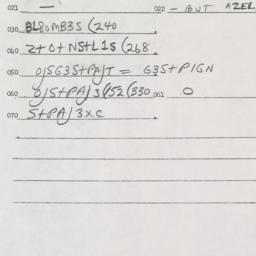 021 — 022 — BUT AZEL
030 BL80MB35 (240
060 Z+O+NS+L1S (268
050 0/5G3S+PA/T = G3S+PIGN
060 0/S+PA/3(152(330 061 .0
070 S+PA/3xC